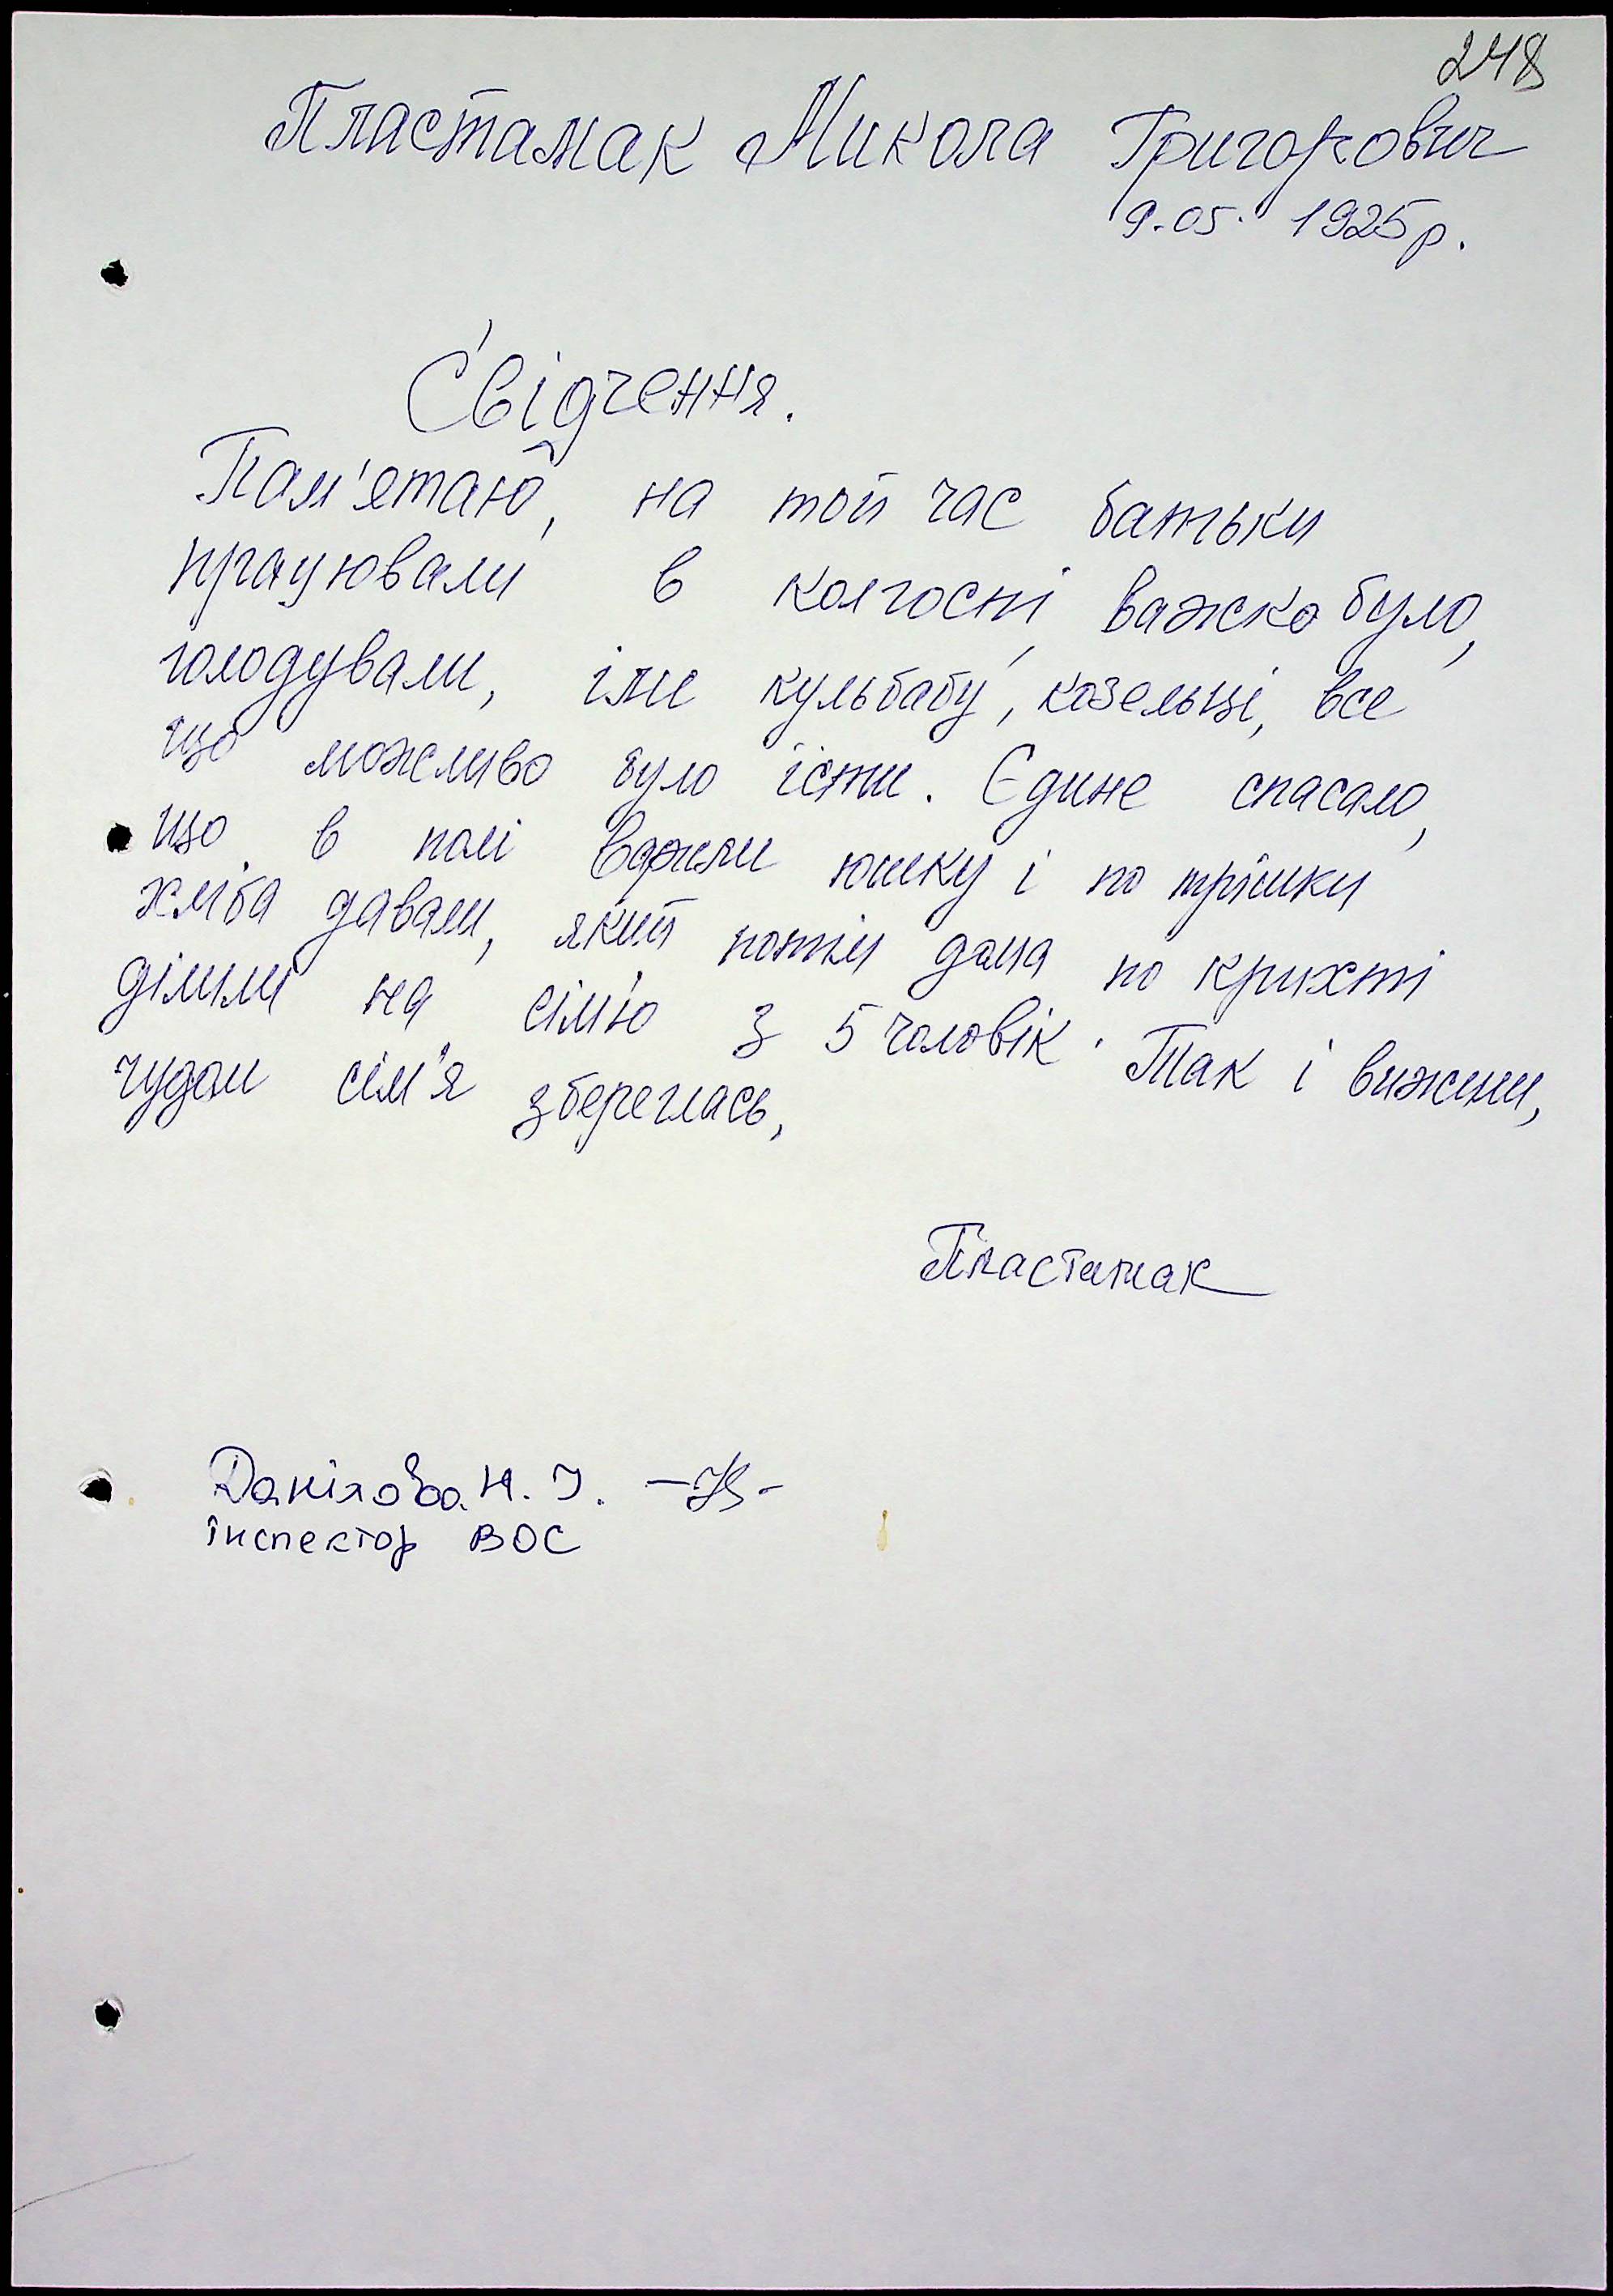 248
Пластамак Микола Григорович
9.05. 1925р.
Свідчення.
Пам'ятаю, на той час батьки
працювали в колгоспі, важко було,
голодували, їли кульбабу, козельці, все
що можливо було їсти. Єдине спасало,
що в полі варили юшку і по трішки
хліба давали, який потім дома по крихті
ділили на сім'ю з 5 чоловік. Так і вижили,
чудом сім'я збереглась,
Пластамак
Данілова Н. І.
інспектор ВОС